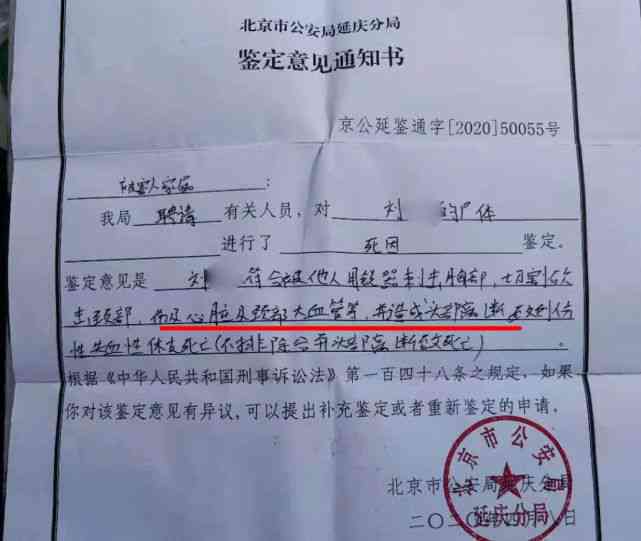 北京市公安局延庆分局
鉴定意见通知书
京公延鉴通字[2020]50055号
被害人家属：
我局 聘请 有关人员，对 刘 的尸体
进行了 死因 鉴定。
鉴定意见是 刘 符合被他人用锐器刺击胸部，切割砍
击颈部，伤及心脏及颈部大血管等，并造成头部离断 致创伤
性失血性休克死亡(不排除合并头部离断致死亡)。
根据《中华人民共和国刑事诉讼法》第一百四十八条之规定，如果
你对该鉴定意见有异议，可以提出补充鉴定或者重新鉴定的申请。
北京市公安局延庆分局
二〇二〇年四月八日
北京市公安局
延庆分局